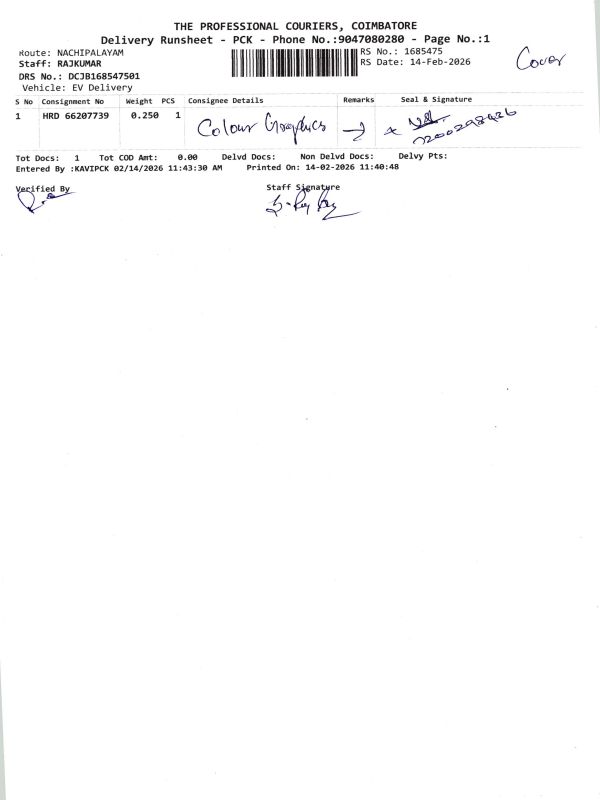 THE PROFESSIONAL COURIERS, COIMBATORE
Delivery Runsheet - PCK - Phone No.:9047080280 - Page No.:1
Route: NACHIPALAYAM
RS No.: 1685475
Cover
Staff: RAJKUMAR
RS Date: 14-Feb-2026
DRS No.: DCJB168547501
Vehicle: EV Delivery
S No Consignment No Weight PCS Consignee Details Remarks Seal & Signature
1 HRD 66207739 0.250 1 Colour Graphics
Tot Docs: 1 Tot COD Amt: 0.00 Delvd Docs: Non Delvd Docs: Delvy Pts:
Entered By :KAVIPCK 02/14/2026 11:43:30 AM Printed On: 14-02-2026 11:40:48
Verified By
Staff Signature